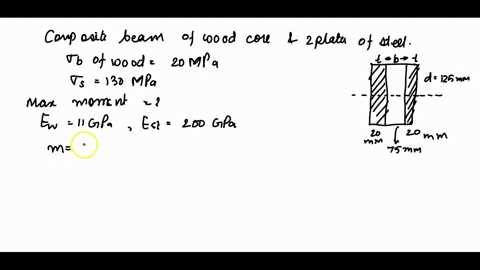 Composite beam of wood core & 2 plate of steel.
σb of wood = 20 MPa
σs = 130 MPa
Max moment = ?
Ew = 11 GPa , Est = 200 GPa
m =
t b t
d = 125 mm
20 mm
20 mm
75 mm